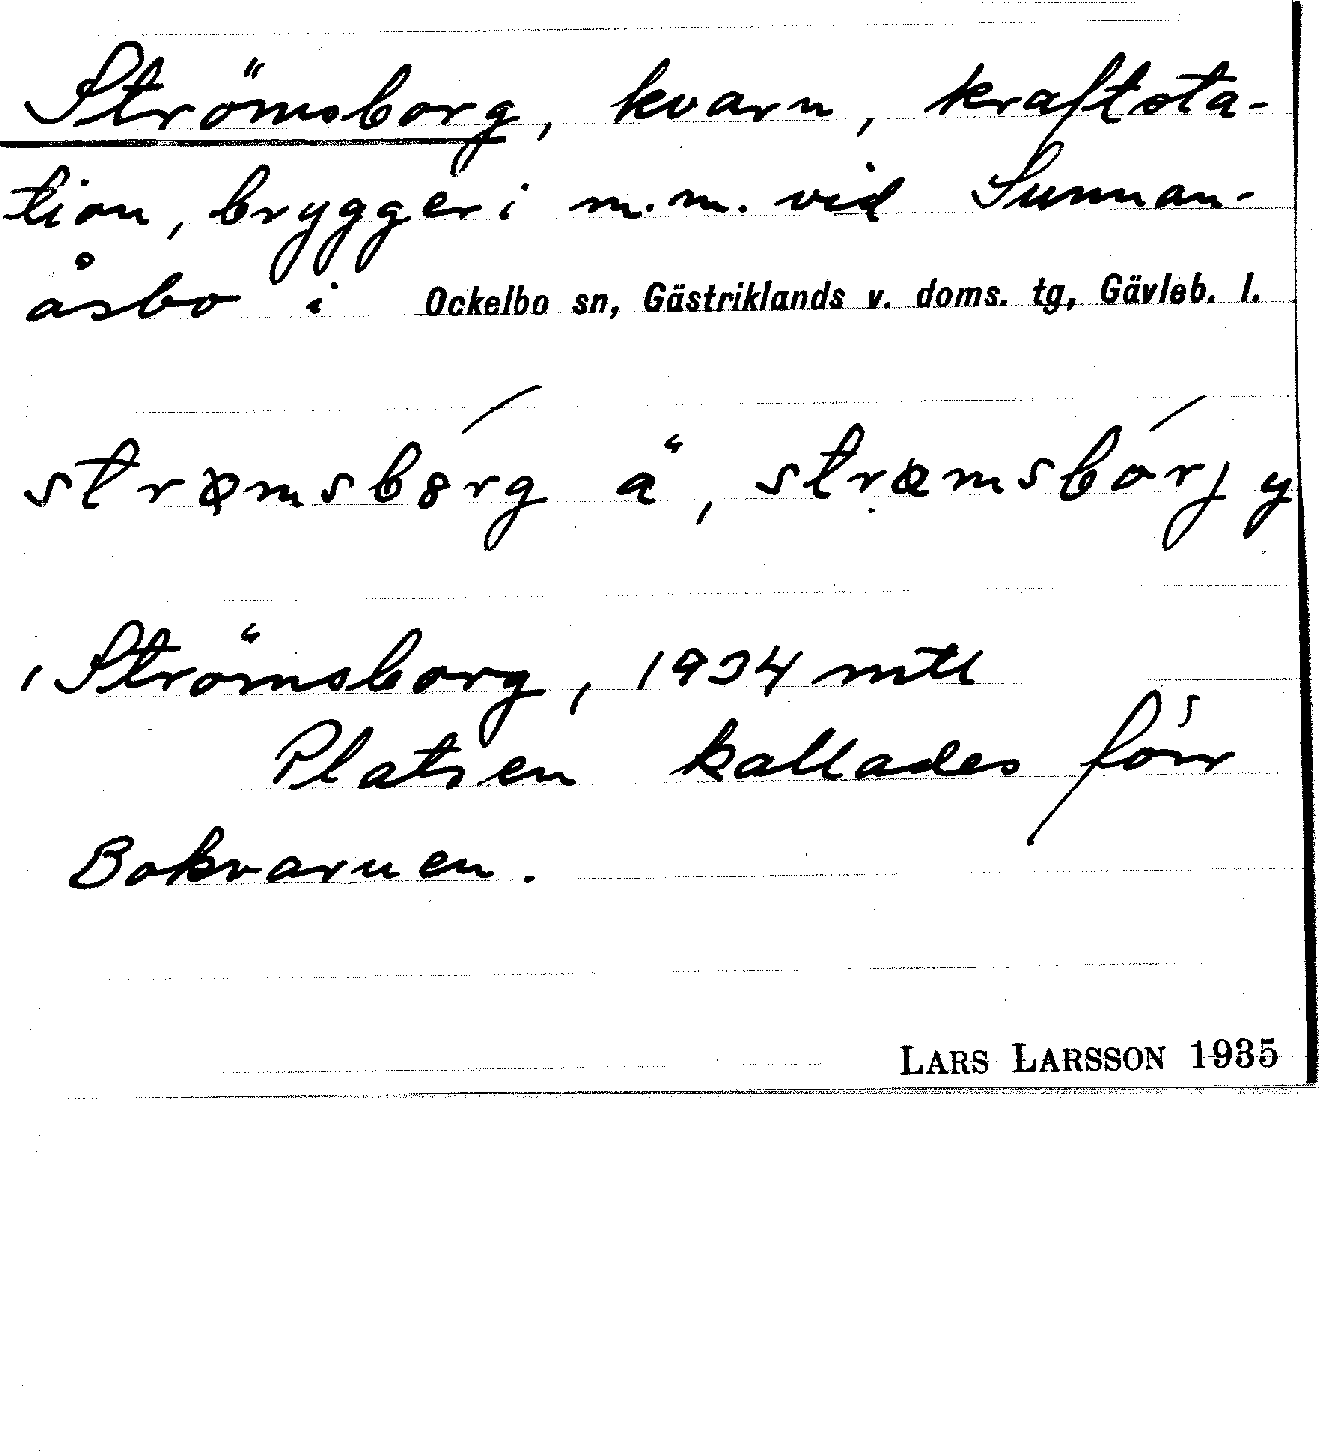 Strömsborg, kvarn, kraftsta-
tion, bryggeri m.m. vid Sunnan-
åsbo i Ockelbo sn, Gästriklands v. doms. tg, Gävleb. l.
strømsbørg ä, strømsbórj y
Strömsborg, 1934 mtl
Platsen kallades förr
Bokvarnen.
LARS LARSSON 1935